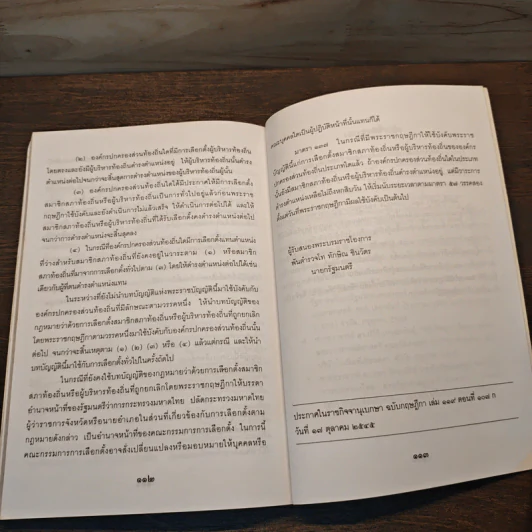 (๒) องค์กรปกครองส่วนท้องถิ่นใดที่มีการเลือกตั้งผู้บริหารท้องถิ่น
โดยตรงและยังมีผู้บริหารท้องถิ่นดำรงตำแหน่งอยู่ ให้ผู้บริหารท้องถิ่นนั้นดำรง
ตำแหน่งต่อไปจนกว่าจะสิ้นสุดการดำรงตำแหน่งของผู้บริหารท้องถิ่นผู้นั้น
(๓) องค์กรปกครองส่วนท้องถิ่นใดได้มีประกาศให้มีการเลือกตั้ง
สมาชิกสภาท้องถิ่นหรือผู้บริหารท้องถิ่นเป็นการทั่วไปอยู่แล้วก่อนพระราช
กฤษฎีกาใช้บังคับและยังดำเนินการไม่แล้วเสร็จ ให้ดำเนินการต่อไปได้ และให้
สมาชิกสภาท้องถิ่นหรือผู้บริหารท้องถิ่นที่ได้รับเลือกตั้งคงดำรงตำแหน่งต่อไป
จนกว่าการดำรงตำแหน่งจะสิ้นสุดลง
(๔) ในกรณีที่องค์กรปกครองส่วนท้องถิ่นใดมีการเลือกตั้งแทนตำแหน่ง
ที่ว่างสำหรับสมาชิกสภาท้องถิ่นที่ยังคงอยู่ในวาระตาม (๑) หรือสมาชิก
สภาท้องถิ่นที่มาจากการเลือกตั้งทั่วไปตาม (๓) โดยให้ดำรงตำแหน่งต่อไปได้เช่น
เดียวกับผู้ที่ตนดำรงตำแหน่งแทน
ในระหว่างที่ยังไม่นำบทบัญญัติแห่งพระราชบัญญัตินี้มาใช้บังคับกับ
องค์กรปกครองส่วนท้องถิ่นที่มีลักษณะตามวรรคหนึ่ง ให้นำบทบัญญัติของ
กฎหมายว่าด้วยการเลือกตั้งสมาชิกสภาท้องถิ่นหรือผู้บริหารท้องถิ่นที่ถูกยกเลิก
โดยพระราชกฤษฎีกาตามวรรคหนึ่งมาใช้บังคับกับองค์กรปกครองส่วนท้องถิ่นนั้น
ต่อไป จนกว่าจะสิ้นเหตุตาม (๑) (๒) (๓) หรือ (๔) แล้วแต่กรณี และให้นำ
บทบัญญัตินี้มาใช้กับการเลือกตั้งทั่วไปในครั้งถัดไป
ในกรณีที่ยังคงใช้บทบัญญัติของกฎหมายว่าด้วยการเลือกตั้งสมาชิก
สภาท้องถิ่นหรือผู้บริหารท้องถิ่นที่ถูกยกเลิกโดยพระราชกฤษฎีกาให้บรรดา
อำนาจหน้าที่ของรัฐมนตรีว่าการกระทรวงมหาดไทย ปลัดกระทรวงมหาดไทย
ผู้ว่าราชการจังหวัดหรือนายอำเภอในส่วนที่เกี่ยวข้องกับการเลือกตั้งตาม
กฎหมายดังกล่าว เป็นอำนาจหน้าที่ของคณะกรรมการการเลือกตั้ง ในการนี้
คณะกรรมการการเลือกตั้งอาจสั่งเปลี่ยนแปลงหรือมอบหมายให้บุคคลหรือ
๑๑๒
คณะบุคคลใดเป็นผู้ปฏิบัติหน้าที่นั้นแทนก็ได้
มาตรา ๑๓๗ ในกรณีที่มีพระราชกฤษฎีกาให้ใช้บังคับพระราช
บัญญัตินี้แก่การเลือกตั้งสมาชิกสภาท้องถิ่นหรือผู้บริหารท้องถิ่นขององค์กร
ปกครองส่วนท้องถิ่นประเภทใดแล้ว ถ้าองค์กรปกครองส่วนท้องถิ่นใดในประเภท
นั้นยังมีสมาชิกสภาท้องถิ่นหรือผู้บริหารท้องถิ่นดำรงตำแหน่งอยู่ แต่มีวาระการ
ดำรงตำแหน่งเหลือไม่ถึงหกสิบวัน ให้เริ่มนับระยะเวลาตามมาตรา ๕๗ วรรคสอง
ตั้งแต่วันที่พระราชกฤษฎีกามีผลใช้บังคับเป็นต้นไป
ผู้รับสนองพระบรมราชโองการ
พันตำรวจโท ทักษิณ ชินวัตร
นายกรัฐมนตรี
ประกาศในราชกิจจานุเบกษา ฉบับกฤษฎีกา เล่ม ๑๑๙ ตอนที่ ๑๐๘ ก
วันที่ ๑๗ ตุลาคม ๒๕๔๕
๑๑๓